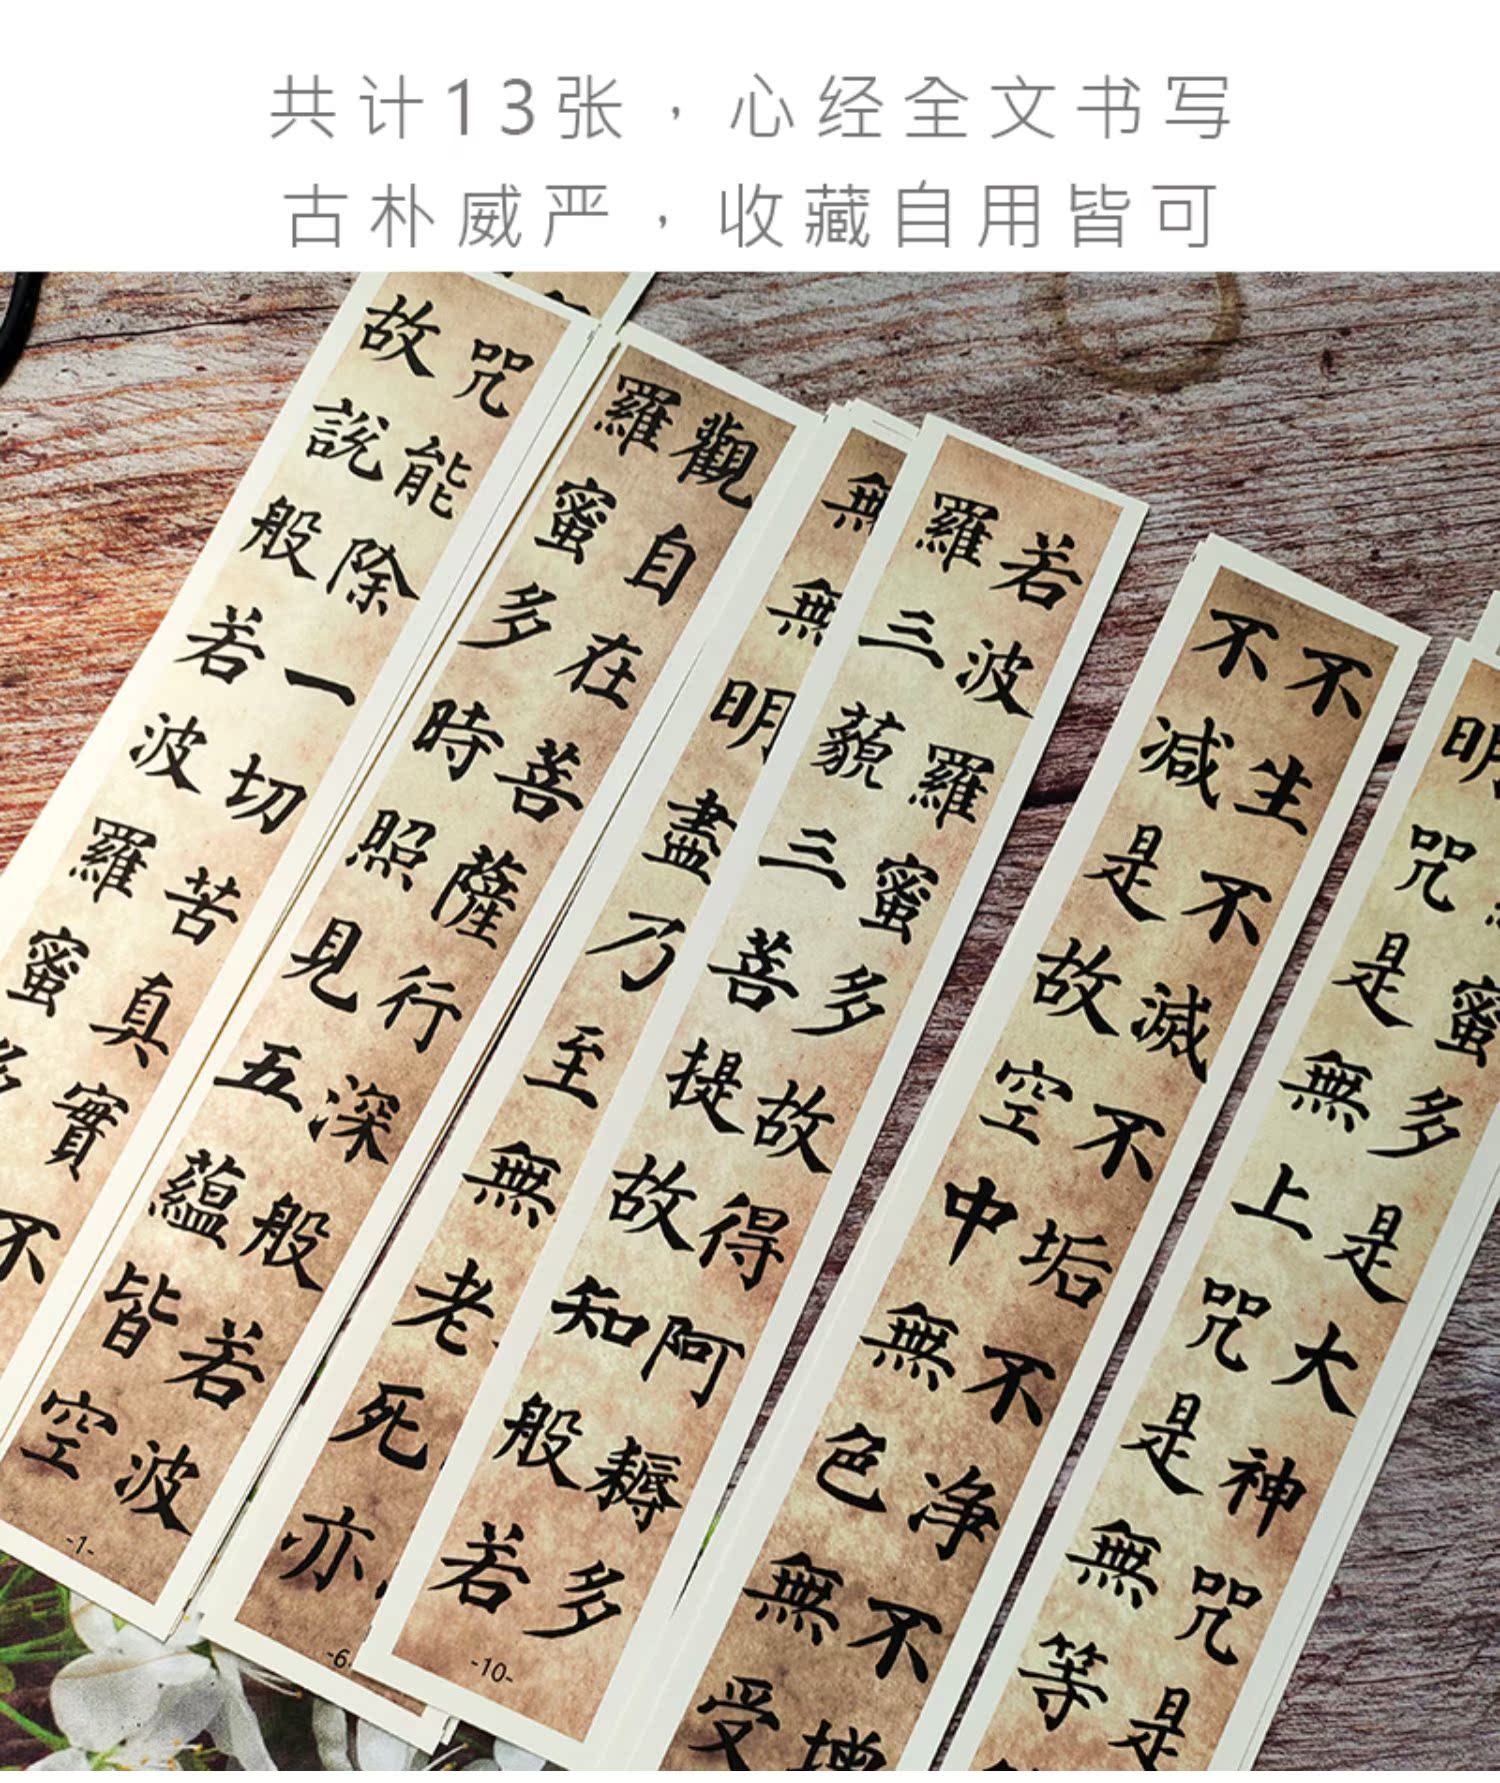 共计13张，心经全文书写
古朴威严，收藏自用皆可
咒能除一切苦真實
故説般若波羅蜜多
不
觀自在菩薩行深般若波
羅蜜多時照見五蘊皆空
-1-
無無明盡乃至無老死亦
-6-
若波羅蜜多故得阿耨多
羅三藐三菩提故知般若
-10-
不生不滅不垢不净不增
不减是故空中無色無受
蜜多是大神咒是
明咒是無上咒是無等